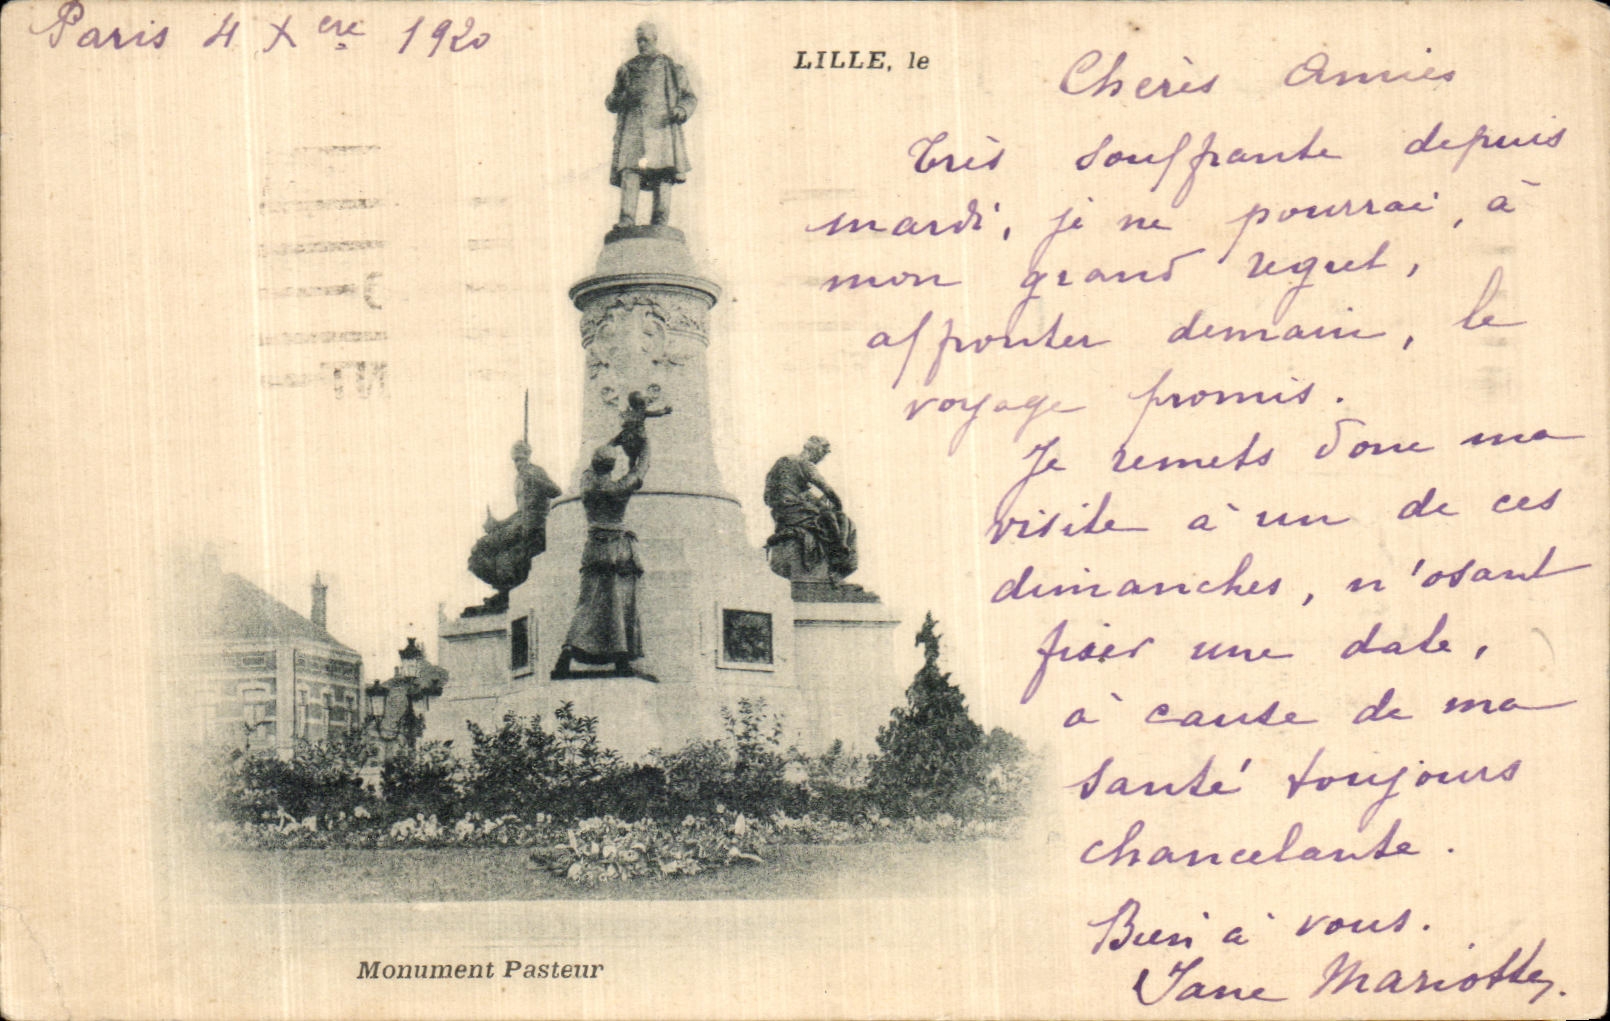 Paris 4 Xere 1920
LILLE, le
Cherès Amies
Très souffrante depuis
mardi, je ne pourrai, à
mon grand regret,
affronter demain, le
voyage promis.
Je remets donc ma
visite à un de ces
dimanches, n'osant
fixer une date,
à cause de ma
santé toujours
chancelante.
Bien à vous.
Jane Mariotte.
Monument Pasteur